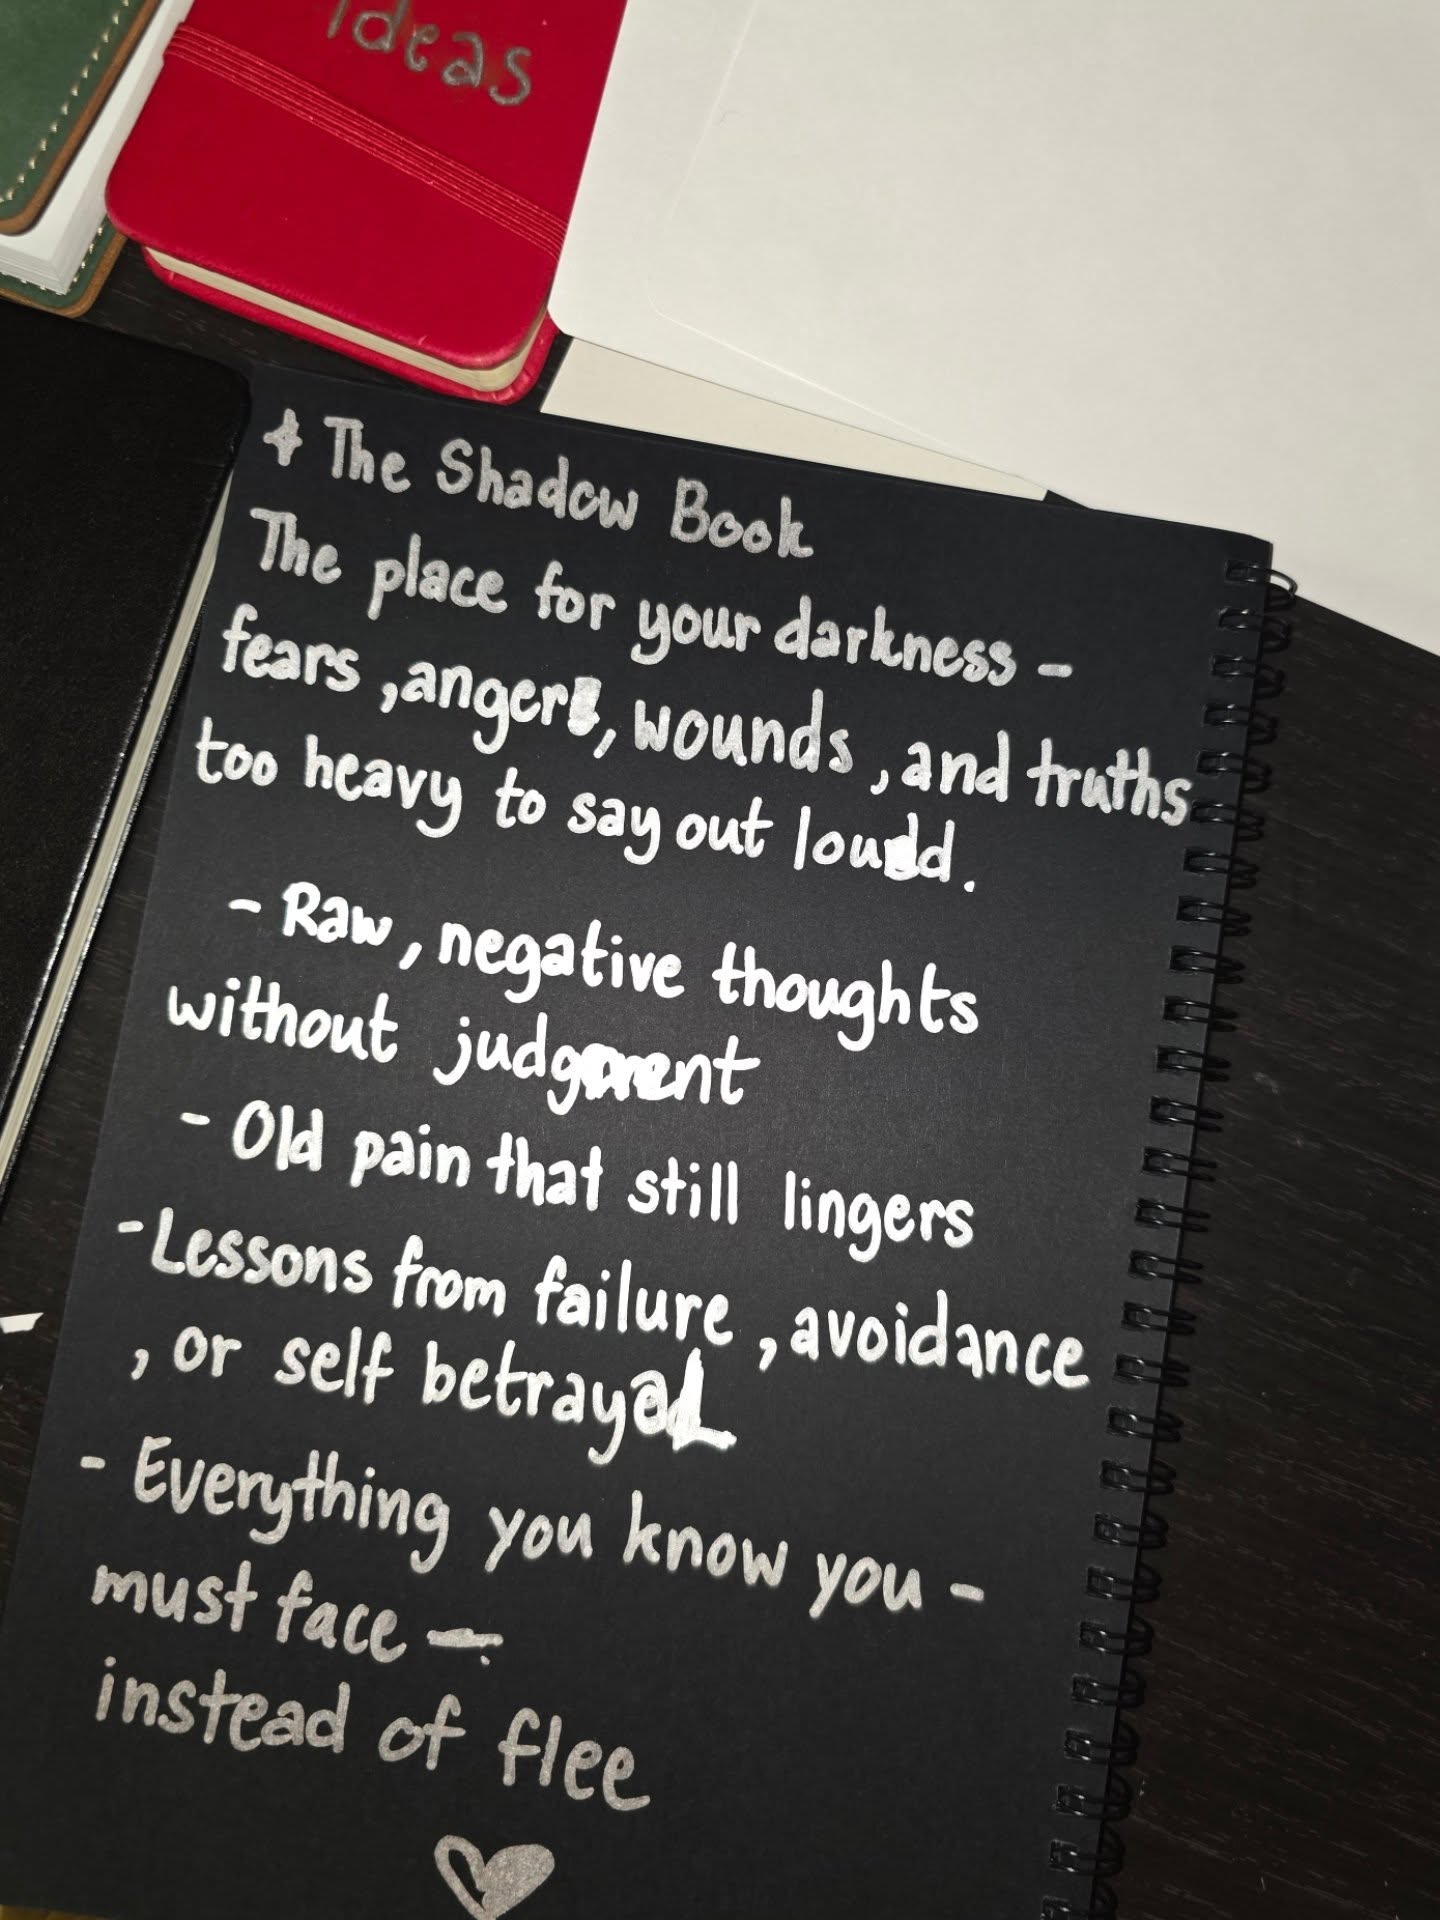 ideas
The Shadow Book
The place for your darkness -
fears ,anger, wounds ,and truths
too heavy to say out loud.
- Raw, negative thoughts
without judgment
- Old pain that still lingers
-Lessons from failure ,avoidance
, or self betrayal
- Everything you know you -
must face -
instead of flee